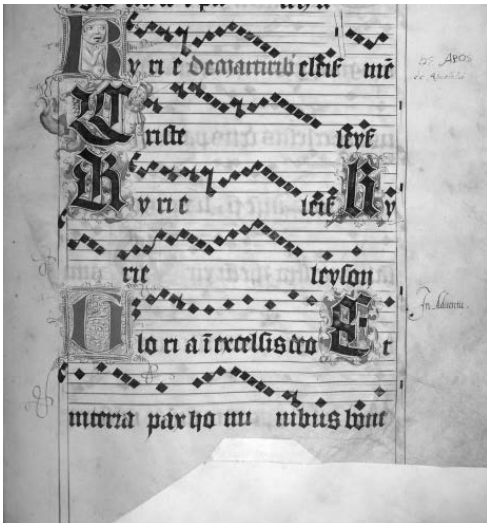 K y ri e De martirib᷒ eleiƺ me
DE APOS
Criste leyƺ
Kyrie leiƺ Ky
rie leyson
In Adventu.
Gloria i excelsis deo Et
interra pax ho mi nibus bone